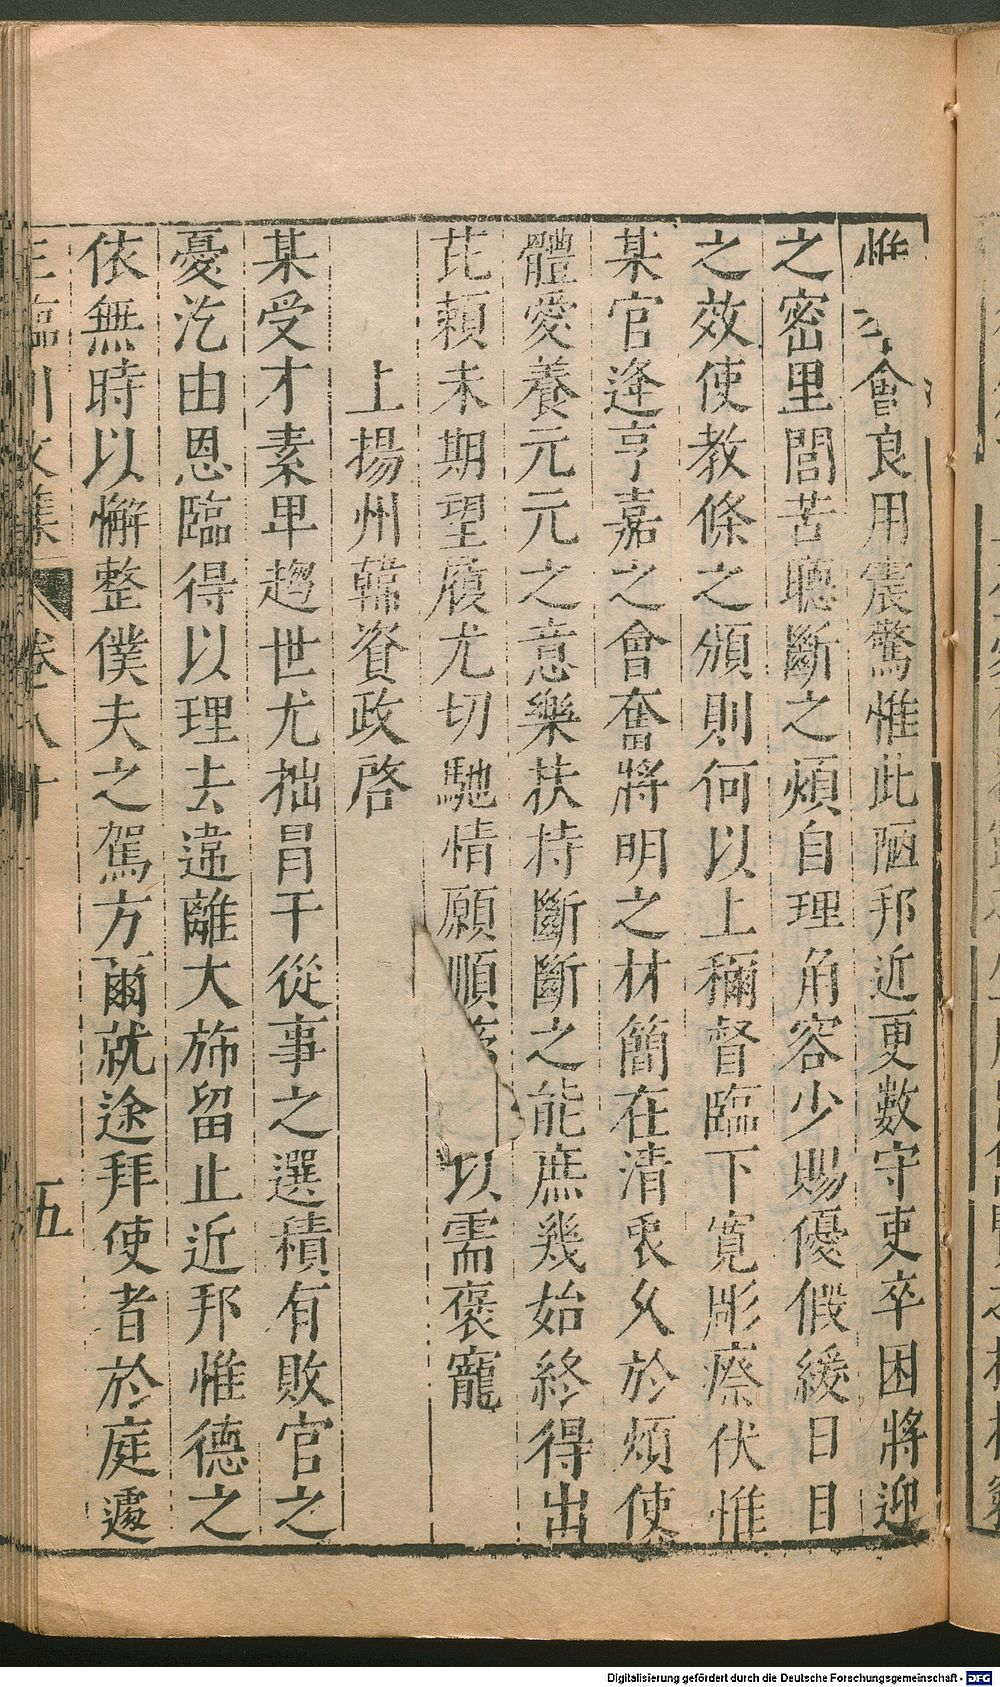 會良用震驚惟此陋邦近更數守吏卒困將迎
之密里閭苦聽斷之煩自理角容少賜優假緩日目
之效使教條之頒則何以上稱督臨下寬彫瘵伏惟
某官逢亨嘉之會奮將明之材簡在清衷久於煩使
體愛養元元之意樂扶持斷斷之能庶幾始終得出
芘賴未期望履尤切馳情願順以需褒寵
上揚州韓資政啓
某受才素卑趨世尤拙冐干從事之選積有敗官之
憂汔由恩臨得以理去違離大斾留止近邦惟德之
依無時以懈整僕夫之駕方爾就途拜使者於庭遽
臨川文集
卷八十
五
Digitalisierung gefördert durch die Deutsche Forschungsgemeinschaft - DFG